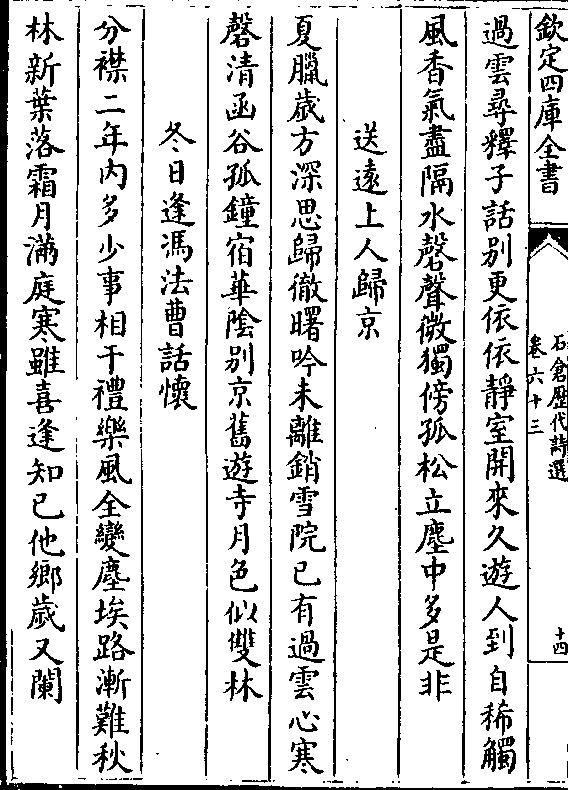 欽定四庫全書
石倉歴代詩選
卷六十三
十四
過雲尋釋子話别更依依靜室開來久遊人到自稀觸
風香氣盡隔水磬聲微獨傍孤松立塵中多是非
送遠上人歸京
夏臘歲方深思歸徹曙吟未離銷雪院已有過雲心寒
磬清函谷孤鐘宿華陰别京舊遊寺月色似雙林
冬日逢馮法曹話懷
分襟二年内多少事相干禮樂風全變塵埃路漸難秋
林新葉落霜月滿庭寒雖喜逢知已他鄉歲又闌